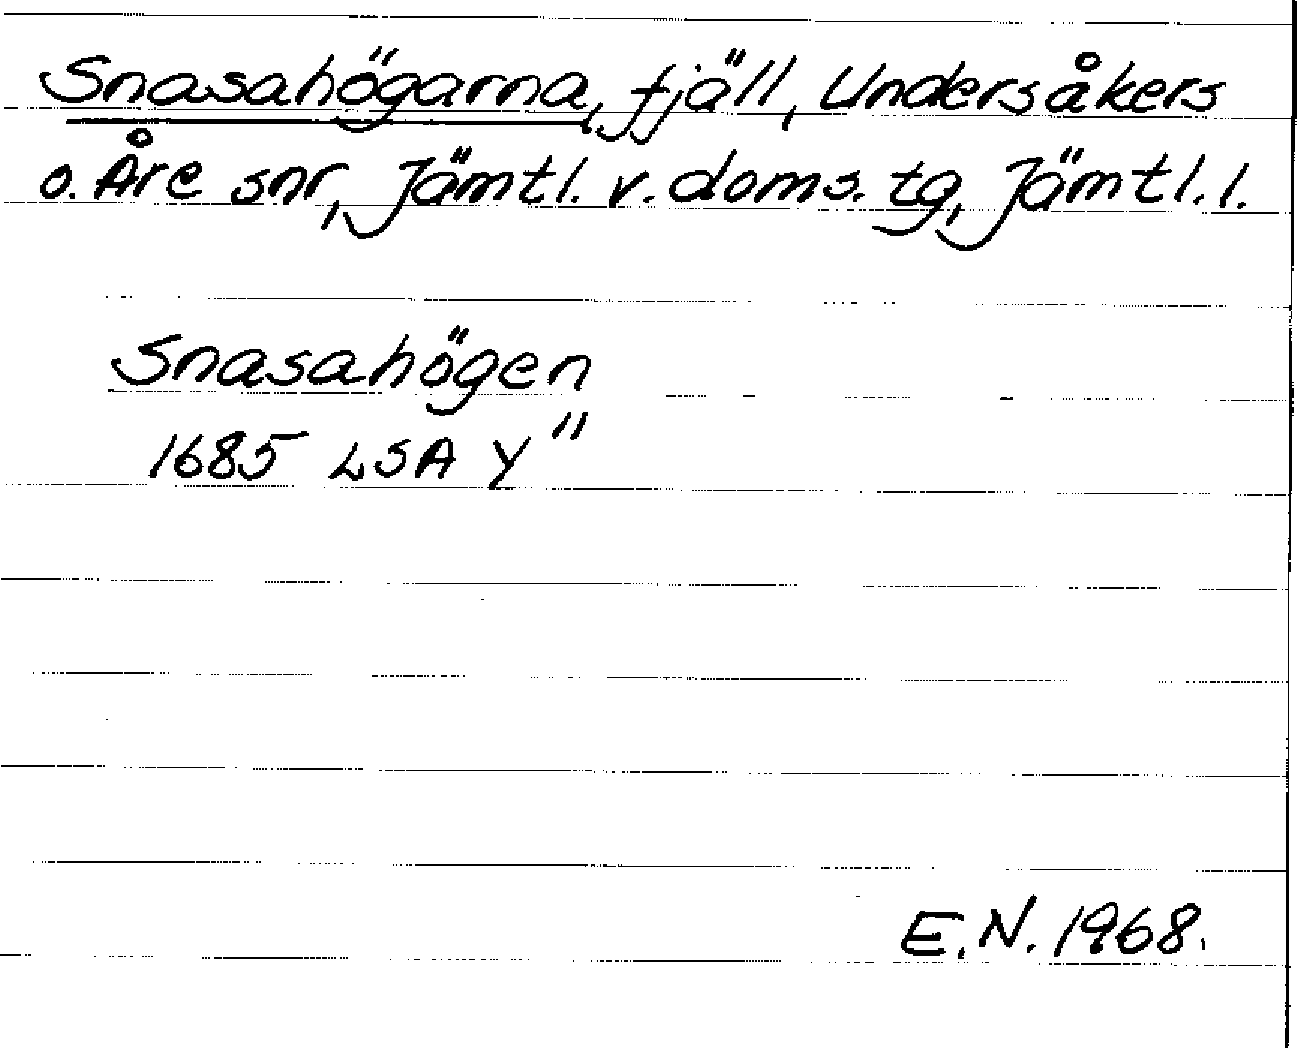 Snasahögarna, fjäll, Undersåkers
o. Åre snr, Jämtl. v. doms. tg, Jämtl. l.
Snasahögen
1685 LSA Y"
E.N. 1968.